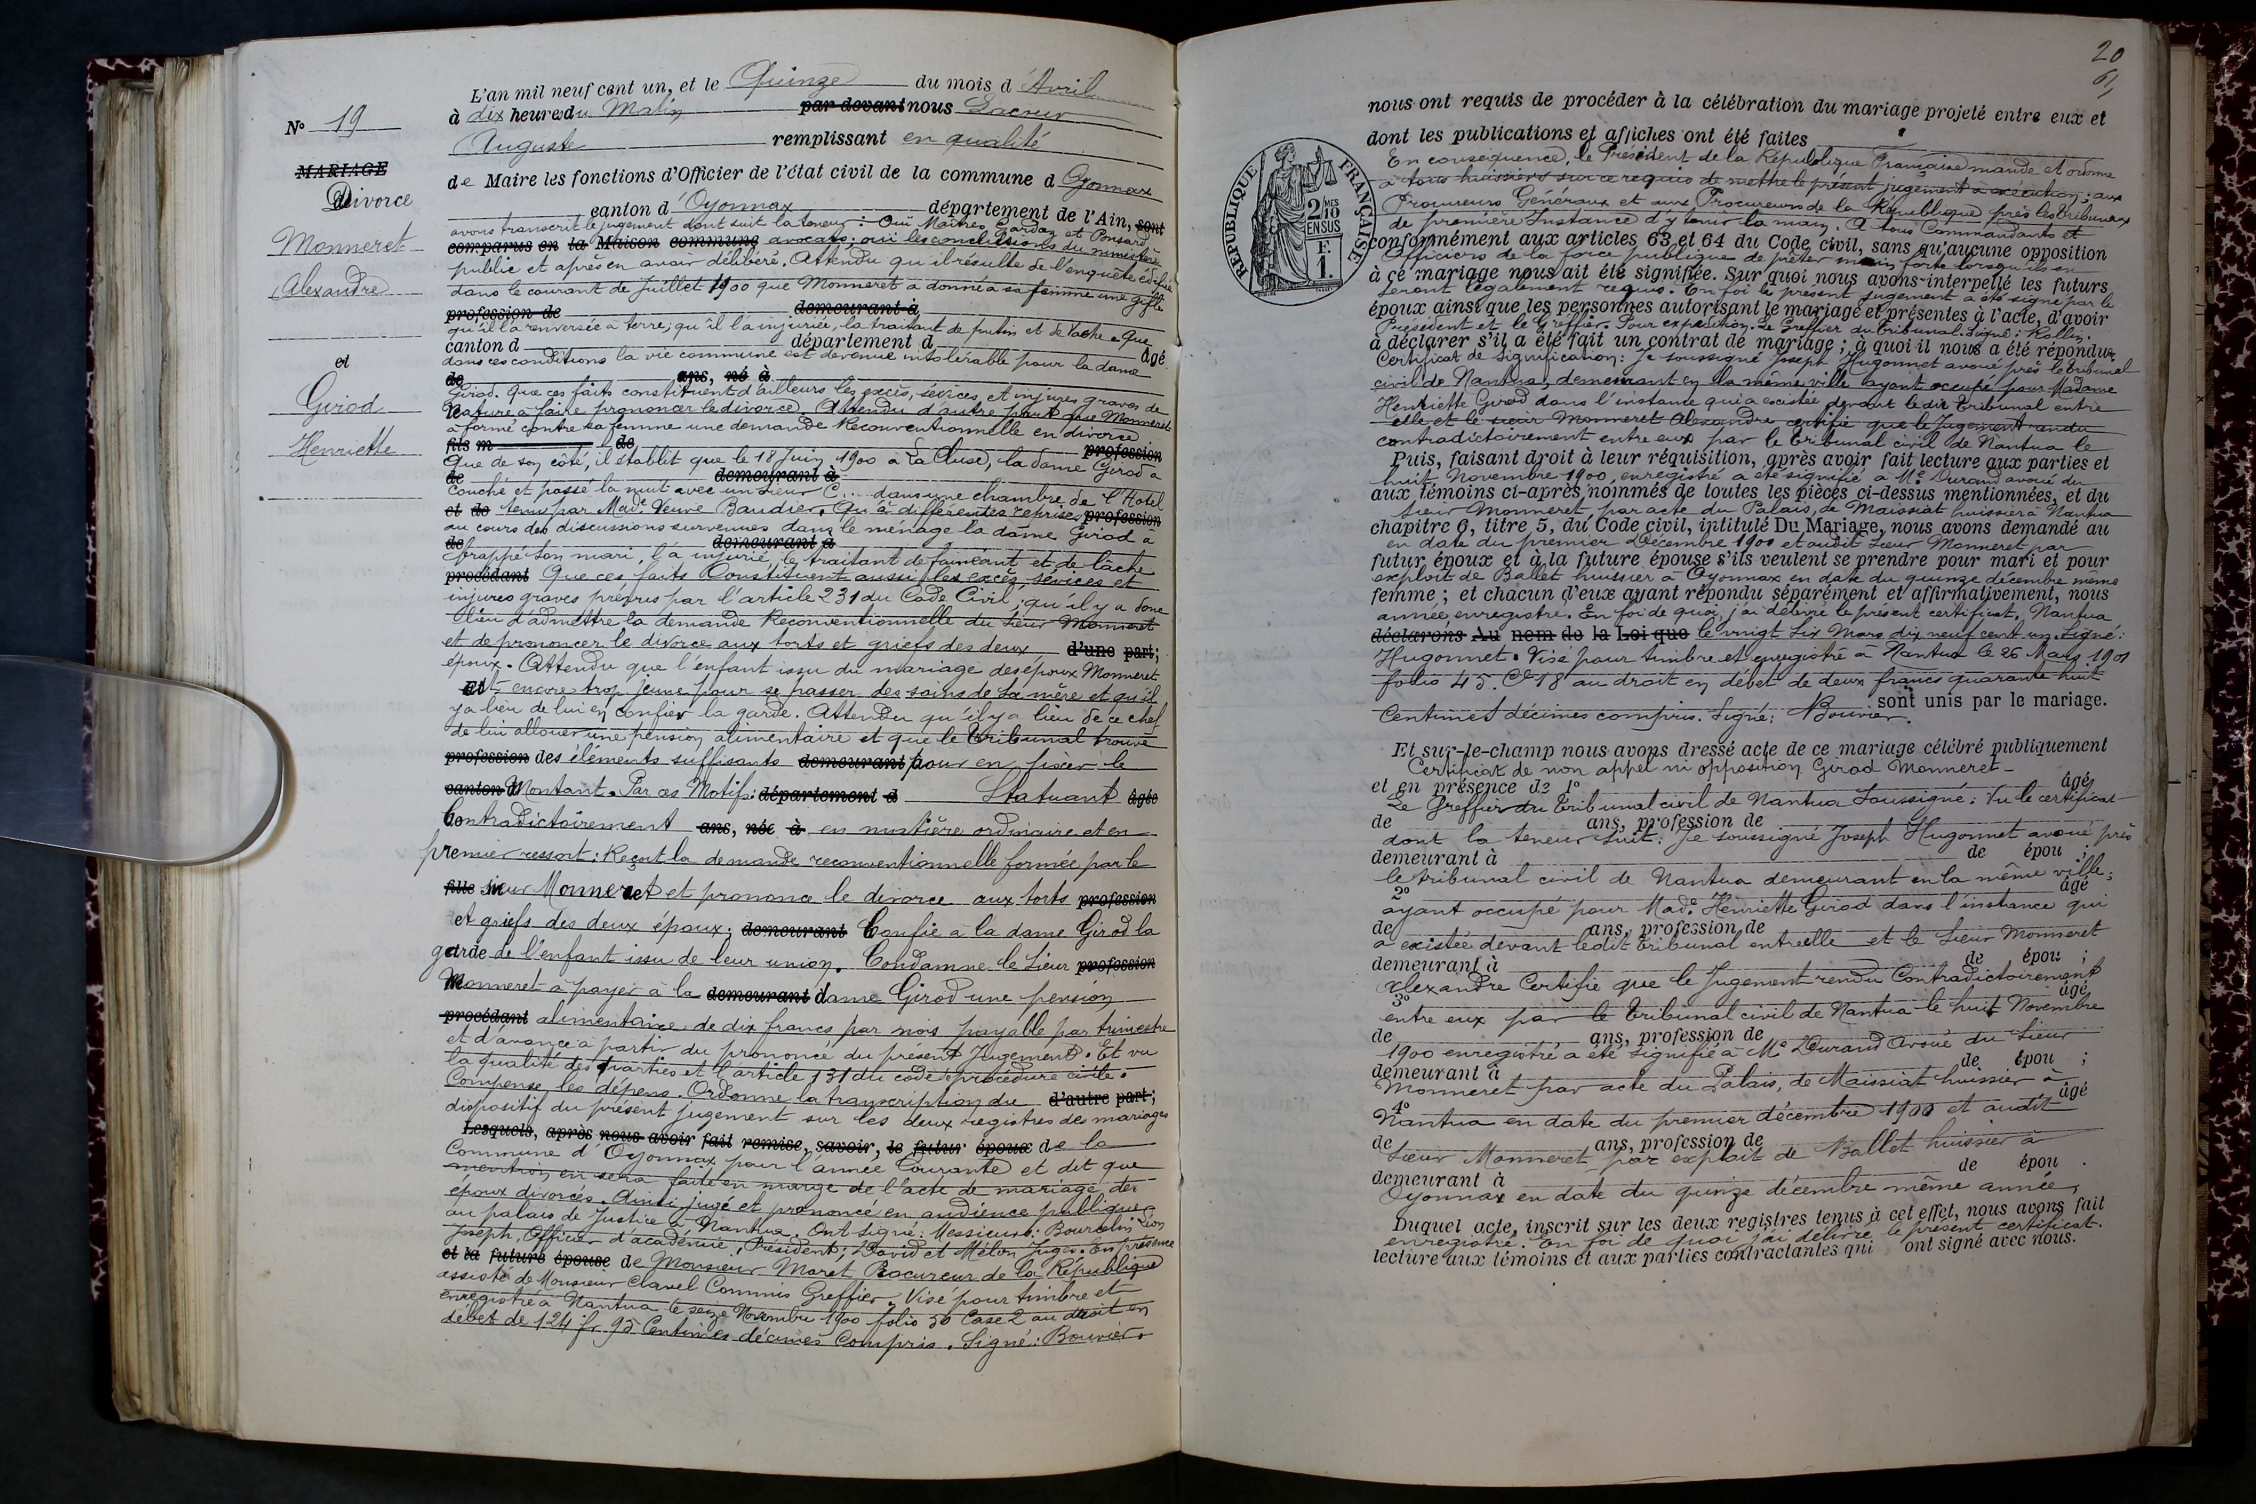 N° 19
MARIAGE
Divorce
Monneret
Alexandre
et
Girod
Henriette
L'an mil neuf cent un, et le Quinze du mois d'Avril
à dix heures du Matin par devant nous Lacrux
Auguste remplissant en qualité
de Maire les fonctions d'Officier de l'état civil de la commune d Oyonnax
canton d'Oyonnax département de l'Ain, sont
avons transcrit le jugement dont suit la teneur : Ouï Maîtres Gardaz et Ponsard
comparus en la Maison commune avocats; ouï les conclusions du ministère
public et après en avoir délibéré. Attendu qu'il résulte de l'enquête édifiée
dans le courant de Juillet 1900 que Monneret a donné à sa femme une giffle
profession de demeurant à
qu'il l'a renversée à terre; qu'il l'a injuriée, la traitant de putin et de Vache. Que
canton d département d âgé
dans ces conditions la vie commune est devenue intolérable pour la dame
de ans, né à
Girod. Que ces faits constituent d'ailleurs les excès, sévices, et injures graves de
Nature à faire prononcer le divorce. Attendu d'autre part que Monneret
a formé contre sa femme une demande Reconventionnelle en divorce
fils m de profession
Que de son côté, il établit que le 18 Juin 1900 à La Cluse, la dame Girod a
de demeurant à
couché et passé la nuit avec un Sieur C... dans une chambre de l'Hotel
et de tenu par Made Veuve Baudier. Qu'à différentes reprises profession
au cours des discussions survenues dans le ménage la dame Girod a
de demeurant à
frappé son mari, l'a injurié, le traitant de fainéant et de lâche
procédant Que ces faits Constituent aussi les excès, sévices et
injures graves prévus par l'article 231 du Code Civil; qu'il y a donc
lieu d'admettre la demande Reconventionnelle du Sieur Monneret
et de prononcer le divorce aux torts et griefs des deux d'une part;
époux. Attendu que l'enfant issu du mariage des époux Monneret
Est encore trop jeune pour se passer des soins de sa mère et qu'il
y a lieu de lui en confier la garde. Attendu qu'il y a lieu de ce chef
de lui allouer une pension alimentaire et que le Tribunal trouve
profession des éléments suffisants demeurant pour en fixer le
canton Montant. Par ces Motifs: département d Statuant âgée
Contradictoirement ans, née à en matière ordinaire et en
premier ressort: Reçoit la demande reconventionnelle formée par le
fille Sieur Monneret et prononce le divorce aux torts profession
et griefs des deux époux; demeurant Confie à la dame Girod la
garde de l'enfant issu de leur union. Condamne le Sieur profession
Monneret à payer à la demeurant dame Girod une pension
procédant alimentaire de dix francs par mois payable par trimestre
et d'avance à partir du prononcé du présent Jugement. Et vu
la qualité des parties et l'article 131 du code procédure civile.
Compense les dépens. Ordonne la transcription du d'autre part;
dispositif du présent jugement sur les deux registres des mariages
Lesquels, après nous avoir fait remise, savoir, le futur époux de la
Commune d'Oyonnax pour l'année Courante et dit que
mention en sera faite en marge de l'acte de mariage des
époux divorcés. Ainsi jugé et prononcé en audience publique
au palais de Justice à Nantua. Ont signé: Messieurs: Bourdin Léon
Joseph, Officier d'académie, Président; David et Mélon Juges. En présence
et la future épouse de Monsieur Moret Procureur de la République
assisté de Monsieur Clavel Commis Greffier. Visé pour timbre et
enregistré à Nantua le seize Novembre 1900 folio 50 Case 2 au droit en
débet de 124 fr. 95 Centimes décimes Compris. Signé: Bouvier.
20
61
RÉPUBLIQUE FRANÇAISE
2/10 MES
EN SUS
F.
1.
nous ont requis de procéder à la célébration du mariage projeté entre eux et
dont les publications et affiches ont été faites
En conséquence, le Président de la République Française mande et ordonne
à tous huissiers sur ce requis de mettre le présent jugement à exécution; aux
Procureurs Généraux et aux Procureurs de la République près les tribunaux
de première Instance d'y tenir la main. A tous Commandants et
conformément aux articles 63 et 64 du Code civil, sans qu'aucune opposition
Officiers de la force publique de prêter main forte lorsqu'ils en
à ce mariage nous ait été signifiée. Sur quoi nous avons interpellé les futurs
seront légalement requis. En foi le présent jugement a été signé par le
époux ainsi que les personnes autorisant le mariage et présentes à l'acte, d'avoir
Président et le Greffier. Pour expédition. Le Greffier du Tribunal. Signé: Rollin.
à déclarer s'il a été fait un contrat de mariage; à quoi il nous a été répondu
Certificat de Signification: Je soussigné Joseph Hugonnet avoué près le tribunal
civil de Nantua, demeurant en la même ville ayant occupé pour Madame
Henriette Girod dans l'instance qui a existée devant le dit Tribunal entre
elle et le sieur Monneret Alexandre certifié que le jugement rendu
contradictoirement entre eux par le Tribunal civil de Nantua le
Puis, faisant droit à leur réquisition, après avoir fait lecture aux parties et
huit Novembre 1900, enregistré a été signifié à Me Durand avoué du
aux témoins ci-après nommés de toutes les pièces ci-dessus mentionnées, et du
sieur Monneret, par acte du Palais, de Maissiat huissier à Nantua
chapitre 6, titre 5, du Code civil, intitulé Du Mariage, nous avons demandé au
en date du premier Décembre 1900 et audit Sieur Monneret par
futur époux et à la future épouse s'ils veulent se prendre pour mari et pour
exploit de Ballet huissier à Oyonnax en date du quinze décembre même
femme; et chacun d'eux ayant répondu séparément et affirmativement, nous
année, enregistré. En foi de quoi, j'ai délivré le présent certificat, Nantua
déclarons Au nom de la Loi que le vingt Six Mars dix neuf cent un. Signé:
Hugonnet. Visé pour timbre et enregistré à Nantua le 26 Mars 1901
folio 45. Ce 18 au droit en débet de deux francs quarante huit
sont unis par le mariage.
Centimes décimes compris. Signé: Bouvier.
Et sur-le-champ nous avons dressé acte de ce mariage célébré publiquement
Certificat de non appel ni opposition Girod Monneret
et en présence de 1° âgé
Le Greffier du Tribunal civil de Nantua Soussigné: Vu le certificat
de ans, profession de
dont la teneur Suit: Je soussigné Joseph Hugonnet avoué près
demeurant à de épou ;
le tribunal civil de Nantua demeurant en la même ville;
2° âgé
ayant occupé pour Made Henriette Girod dans l'instance qui
de ans, profession de
a existée devant le dit Tribunal entre elle et le Sieur Monneret
demeurant à de épou ;
Alexandre Certifie que le Jugement rendu Contradictoirement
3° âgé
entre eux par le Tribunal civil de Nantua le huit Novembre
de ans, profession de
1900 enregistré a été signifié à Me Durand Avoué du Sieur
demeurant à de épou ;
Monneret par acte du Palais, de Maissiat huissier à
4° âgé
Nantua en date du premier décembre 1900 et audit
de ans, profession de
Sieur Monneret par exploit de Ballet huissier à
demeurant à de épou .
Oyonnax en date du quinze décembre même année,
Duquel acte, inscrit sur les deux registres tenus à cet effet, nous avons fait
enregistré. En foi de quoi j'ai délivré le présent certificat.
lecture aux témoins et aux parties contractantes qui ont signé avec nous.